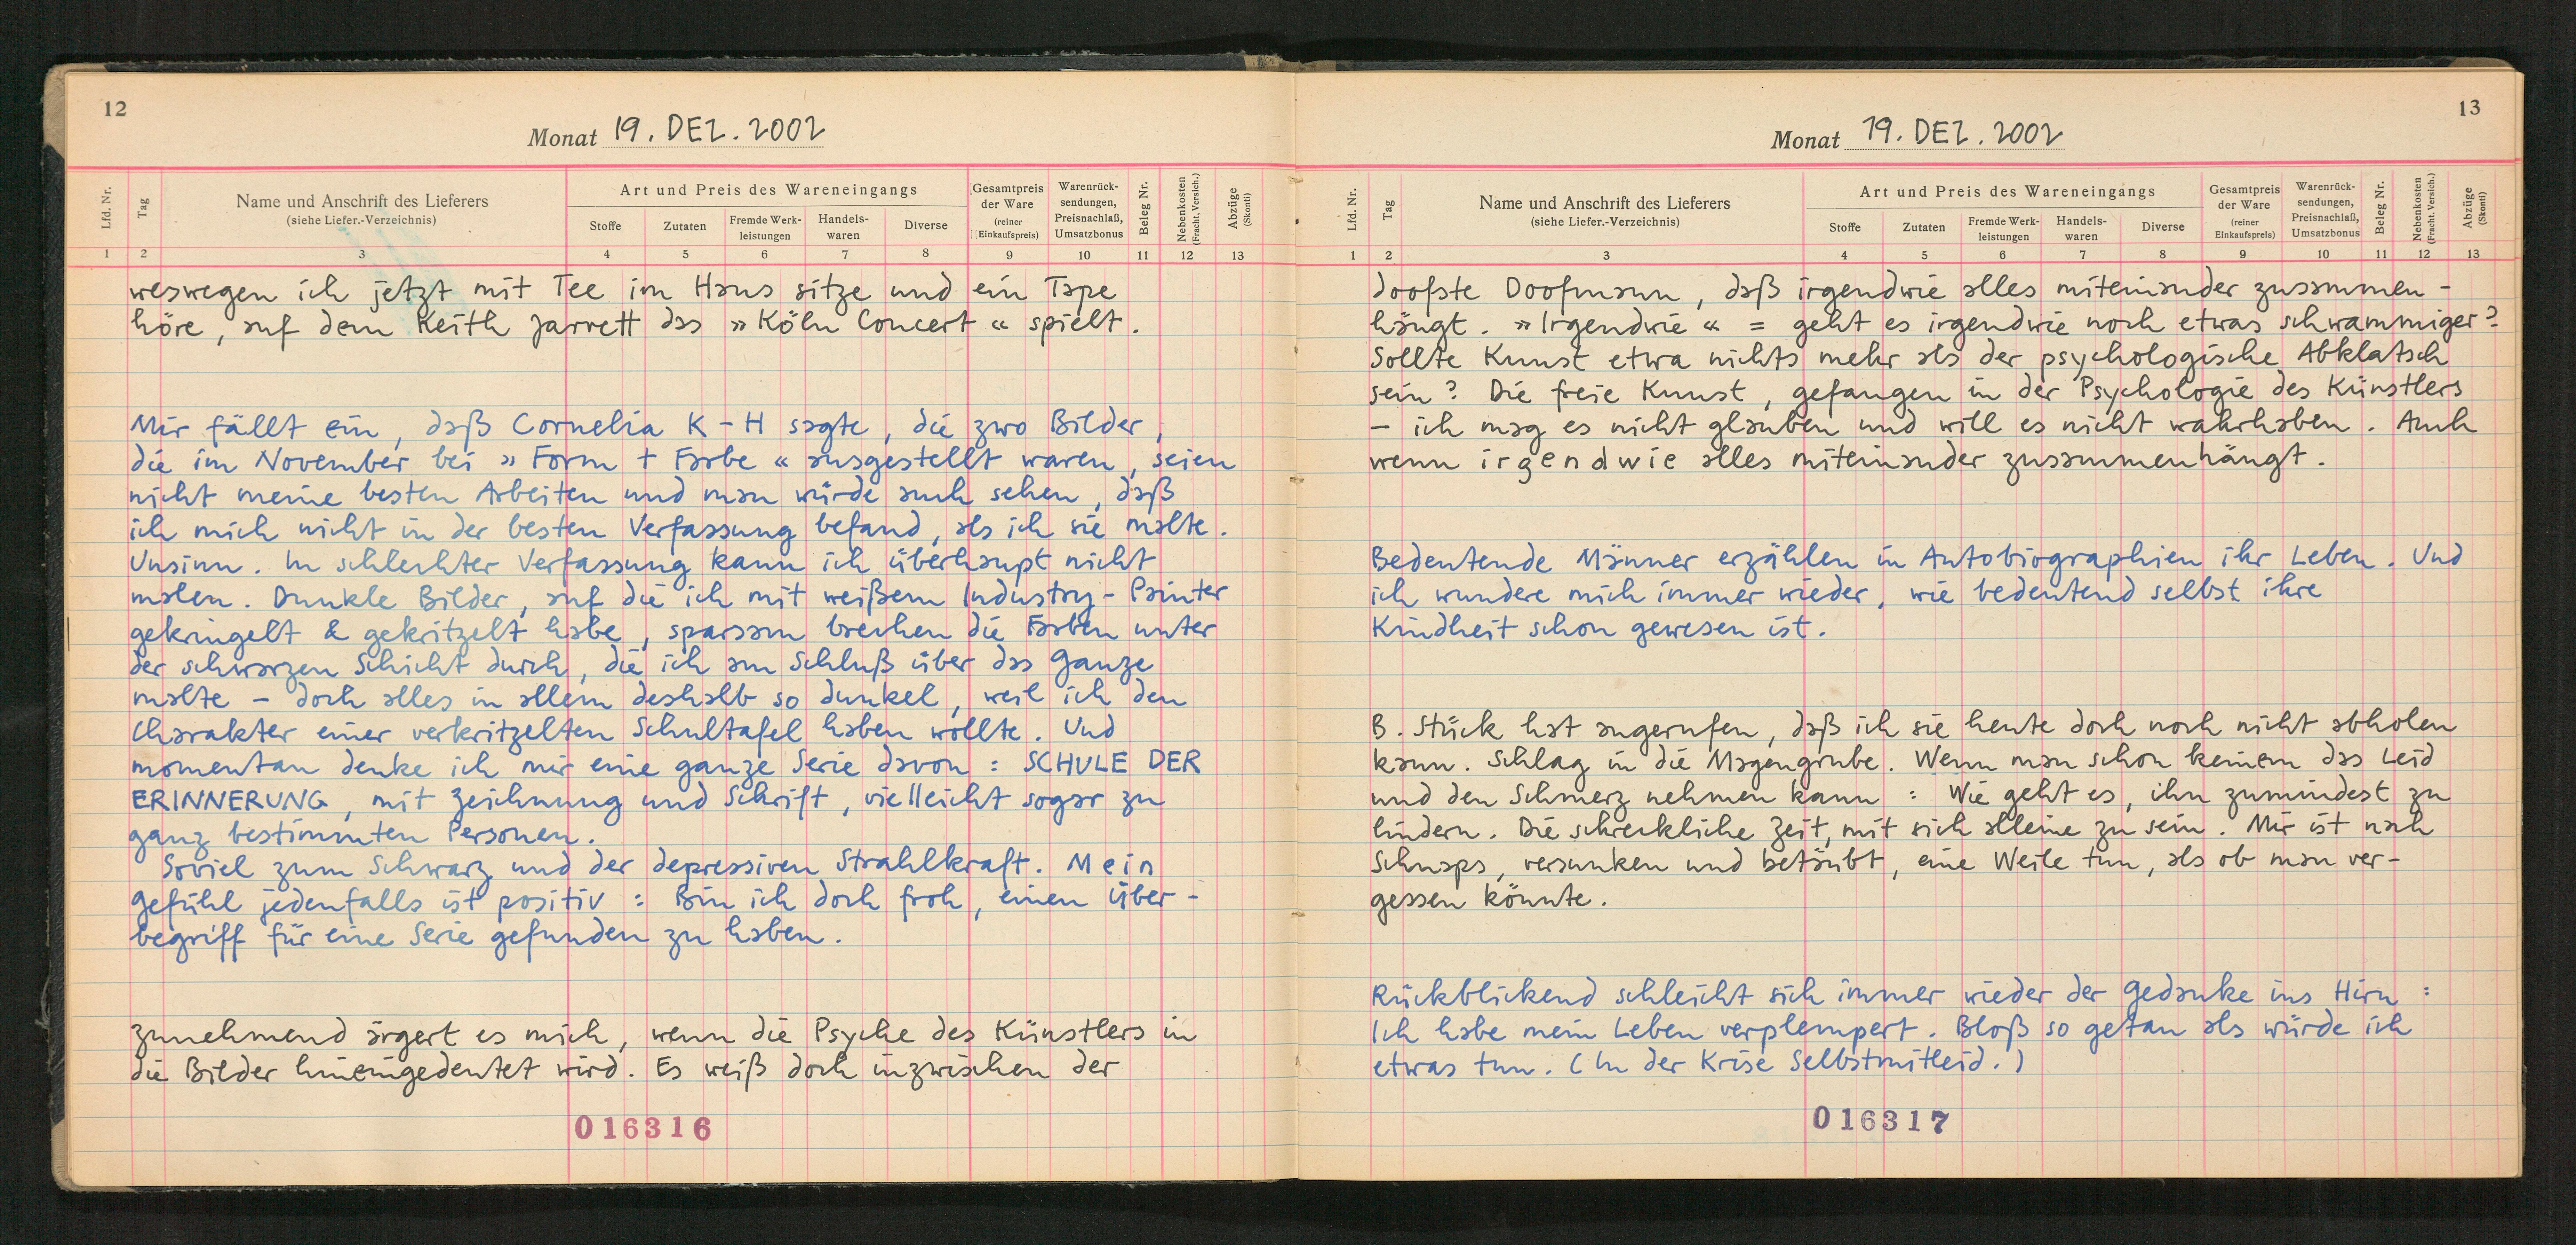 12
Monat 19. DEZ. 2002
Lfd. Nr.
Tag
Name und Anschrift des Lieferers
(siehe Liefer.-Verzeichnis)
Art und Preis des Wareneingangs
Stoffe
Zutaten
Fremde Werk-
leistungen
Handels-
waren
Diverse
Gesamtpreis
der Ware
(reiner
Einkaufspreis)
Warenrück-
sendungen,
Preisnachlaß,
Umsatzbonus
Beleg Nr.
Nebenkosten
(Fracht, Versich.)
Abzüge
(Skonti)
1 2 3 4 5 6 7 8 9 10 11 12 13
weswegen ich jetzt mit Tee im Haus sitze und ein Tape
höre, auf dem Keith Jarrett das »Köln Concert« spielt.
Mir fällt ein, daß Cornelia K-H sagte, die zwo Bilder,
die im November bei »Form + Farbe« ausgestellt waren, seien
nicht meine besten Arbeiten und man würde auch sehen, daß
ich mich nicht in der besten Verfassung befand, als ich sie malte.
Unsinn. In schlechter Verfassung kann ich überhaupt nicht
malen. Dunkle Bilder, auf die ich mit weißem Industry-Painter
gekringelt & gekritzelt habe, sparsam brechen die Farben unter
der schwarzen Schicht durch, die ich am Schluß über das Ganze
malte – doch alles in allem deshalb so dunkel, weil ich den
Charakter einer verkritzelten Schultafel haben wollte. Und
momentan denke ich mir eine ganze Serie davon: SCHULE DER
ERINNERUNG, mit Zeichnung und Schrift, vielleicht sogar zu
ganz bestimmten Personen.
Soviel zum Schwarz und der depressiven Strahlkraft. Mein
Gefühl jedenfalls ist positiv: Bin ich doch froh, einen Über-
begriff für eine Serie gefunden zu haben.
Zunehmend ärgert es mich, wenn die Psyche des Künstlers in
die Bilder hineingedeutet wird. Es weiß doch inzwischen der
016316
13
Monat 19. DEZ. 2002
Lfd. Nr.
Tag
Name und Anschrift des Lieferers
(siehe Liefer.-Verzeichnis)
Art und Preis des Wareneingangs
Stoffe
Zutaten
Fremde Werk-
leistungen
Handels-
waren
Diverse
Gesamtpreis
der Ware
(reiner
Einkaufspreis)
Warenrück-
sendungen,
Preisnachlaß,
Umsatzbonus
Beleg Nr.
Nebenkosten
(Fracht, Versich.)
Abzüge
(Skonti)
1 2 3 4 5 6 7 8 9 10 11 12 13
doofste Doofmann, daß irgendwie alles miteinander zusammen-
hängt. »Irgendwie« = geht es irgendwie noch etwas schwammiger?
Sollte Kunst etwa nichts mehr als der psychologische Abklatsch
sein? Die freie Kunst, gefangen in der Psychologie des Künstlers
– ich mag es nicht glauben und will es nicht wahrhaben. Auch
wenn irgendwie alles miteinander zusammenhängt.
Bedeutende Männer erzählen in Autobiographien ihr Leben. Und
ich wundere mich immer wieder, wie bedeutend selbst ihre
Kindheit schon gewesen ist.
B. Stück hat angerufen, daß ich sie heute doch noch nicht abholen
kann. Schlag in die Magengrube. Wenn man schon keinem das Leid
und den Schmerz nehmen kann: Wie geht es, ihn zumindest zu
lindern. Die schreckliche Zeit, mit sich alleine zu sein. Mir ist nach
Schnaps, versunken und betäubt, eine Weile tun, als ob man ver-
gessen könnte.
Rückblickend schleicht sich immer wieder der Gedanke ins Hirn:
Ich habe mein Leben verplempert. Bloß so getan als würde ich
etwas tun. (In der Krise Selbstmitleid.)
016317